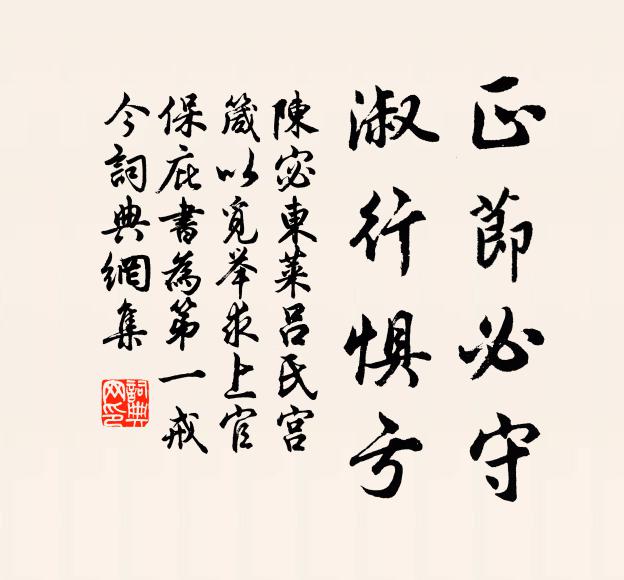 正節必守
淑行惧亏
陳宓東萊呂氏宫
箴以覓举求上官
保庇書為第一戒
今詞典網集
詞典网印